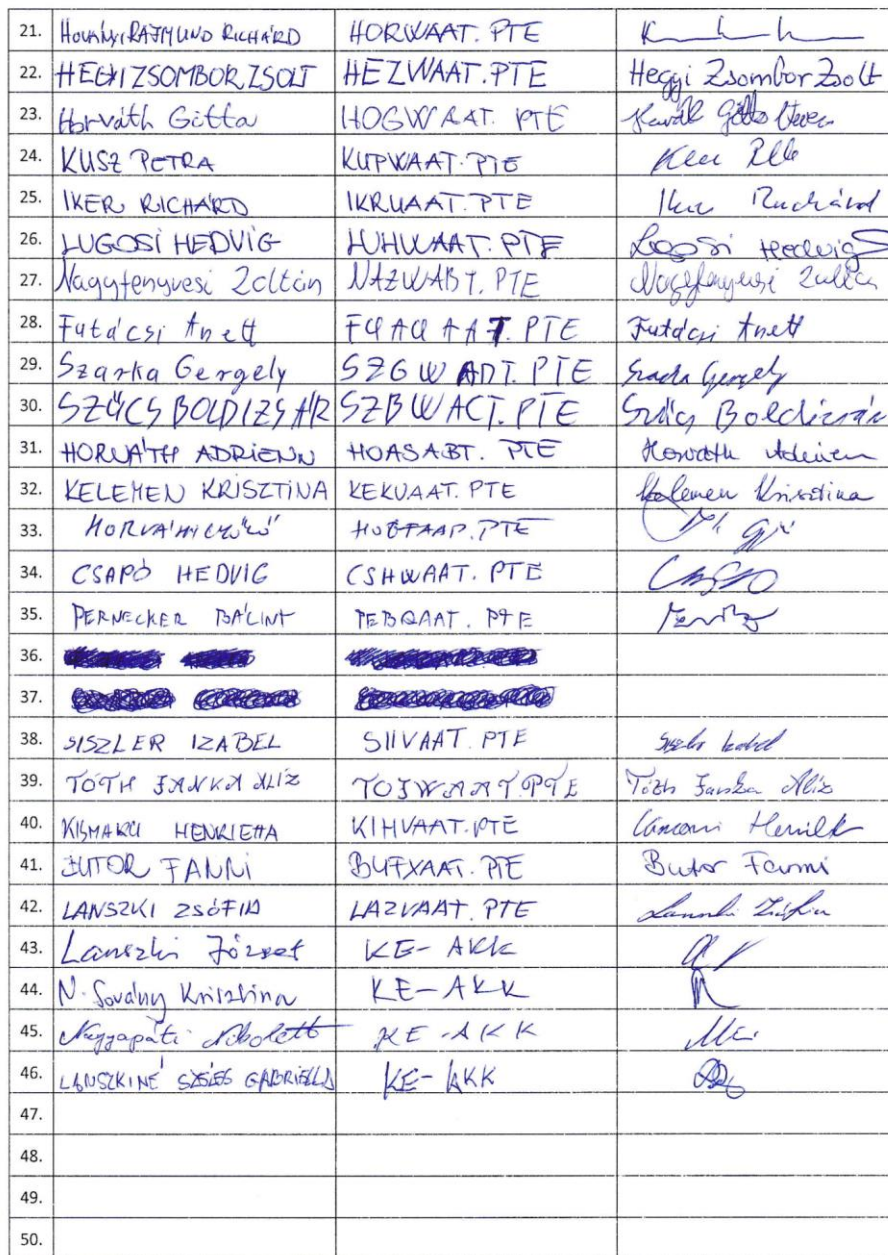 21. HOVÁNYI RAJMUND RICHÁRD HORWAAT.PTE
22. HEGYI ZSOMBOR ZSOLT HEZWAAT.PTE Hegyi Zsombor Zsolt
23. Horváth Gitta HOGWAAT.PTE
24. KUSZ PETRA KUPWAAT.PTE
25. IKER RICHÁRD IKRUAAT.PTE Iker Richárd
26. LUGOSI HEDVIG LUHWAAT.PTE Lugosi Hedvig
27. Nagyfenyvesi Zoltán NAZWABT.PTE Nagyfenyvesi Zoltán
28. Futácsi Anett FUAUAAT.PTE Futácsi Anett
29. Szarka Gergely SZGWADT.PTE Szarka Gergely
30. SZŰCS BOLDIZSÁR SZBWACT.PTE Szűcs Boldizsár
31. HORVÁTH ADRIENN HOASABT.PTE Horváth Adrienn
32. KELEMEN KRISZTINA KEKVAAT.PTE Kelemen Krisztina
33. HORVÁTH
34. CSAPÓ HEDVIG CSHWAAT.PTE
35. PERNECKER BÁLINT PEBQAAT.PTE
36.
37.
38. SISZLER IZABEL SIIVAAT.PTE Siszler Izabel
39. TÓTH JANKA ALÍZ TOJWAAT.PTE Tóth Janka Alíz
40. KISMARCI HENRIETTA KIHVAAT.PTE
41. BUTOR FANNI BUFXAAT.PTE Butor Fanni
42. LANSZKI ZSÓFIA LAZVAAT.PTE Lanszki Zsófia
43. Lanszki József KE-AKK
44. N. Sovány Krisztina KE-AKK
45. Nagyapáti Nikolett KE-AKK
46. LANSZKINÉ SZÉLES GABRIELLA KE-AKK
47.
48.
49.
50.